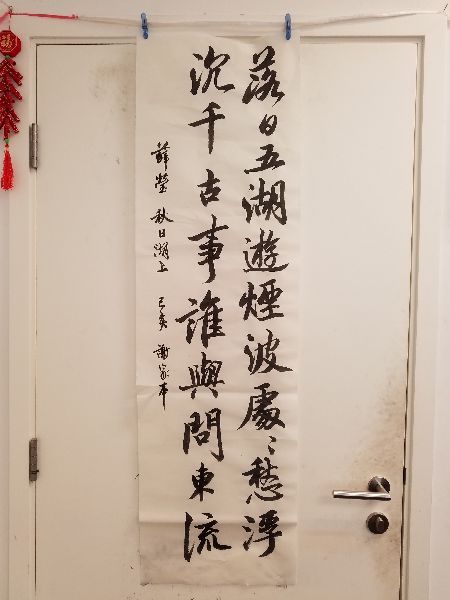 落日五湖遊煙波處〻愁浮
沉千古事誰與問東流
薛瑩 秋日湖上 己亥 謝家本